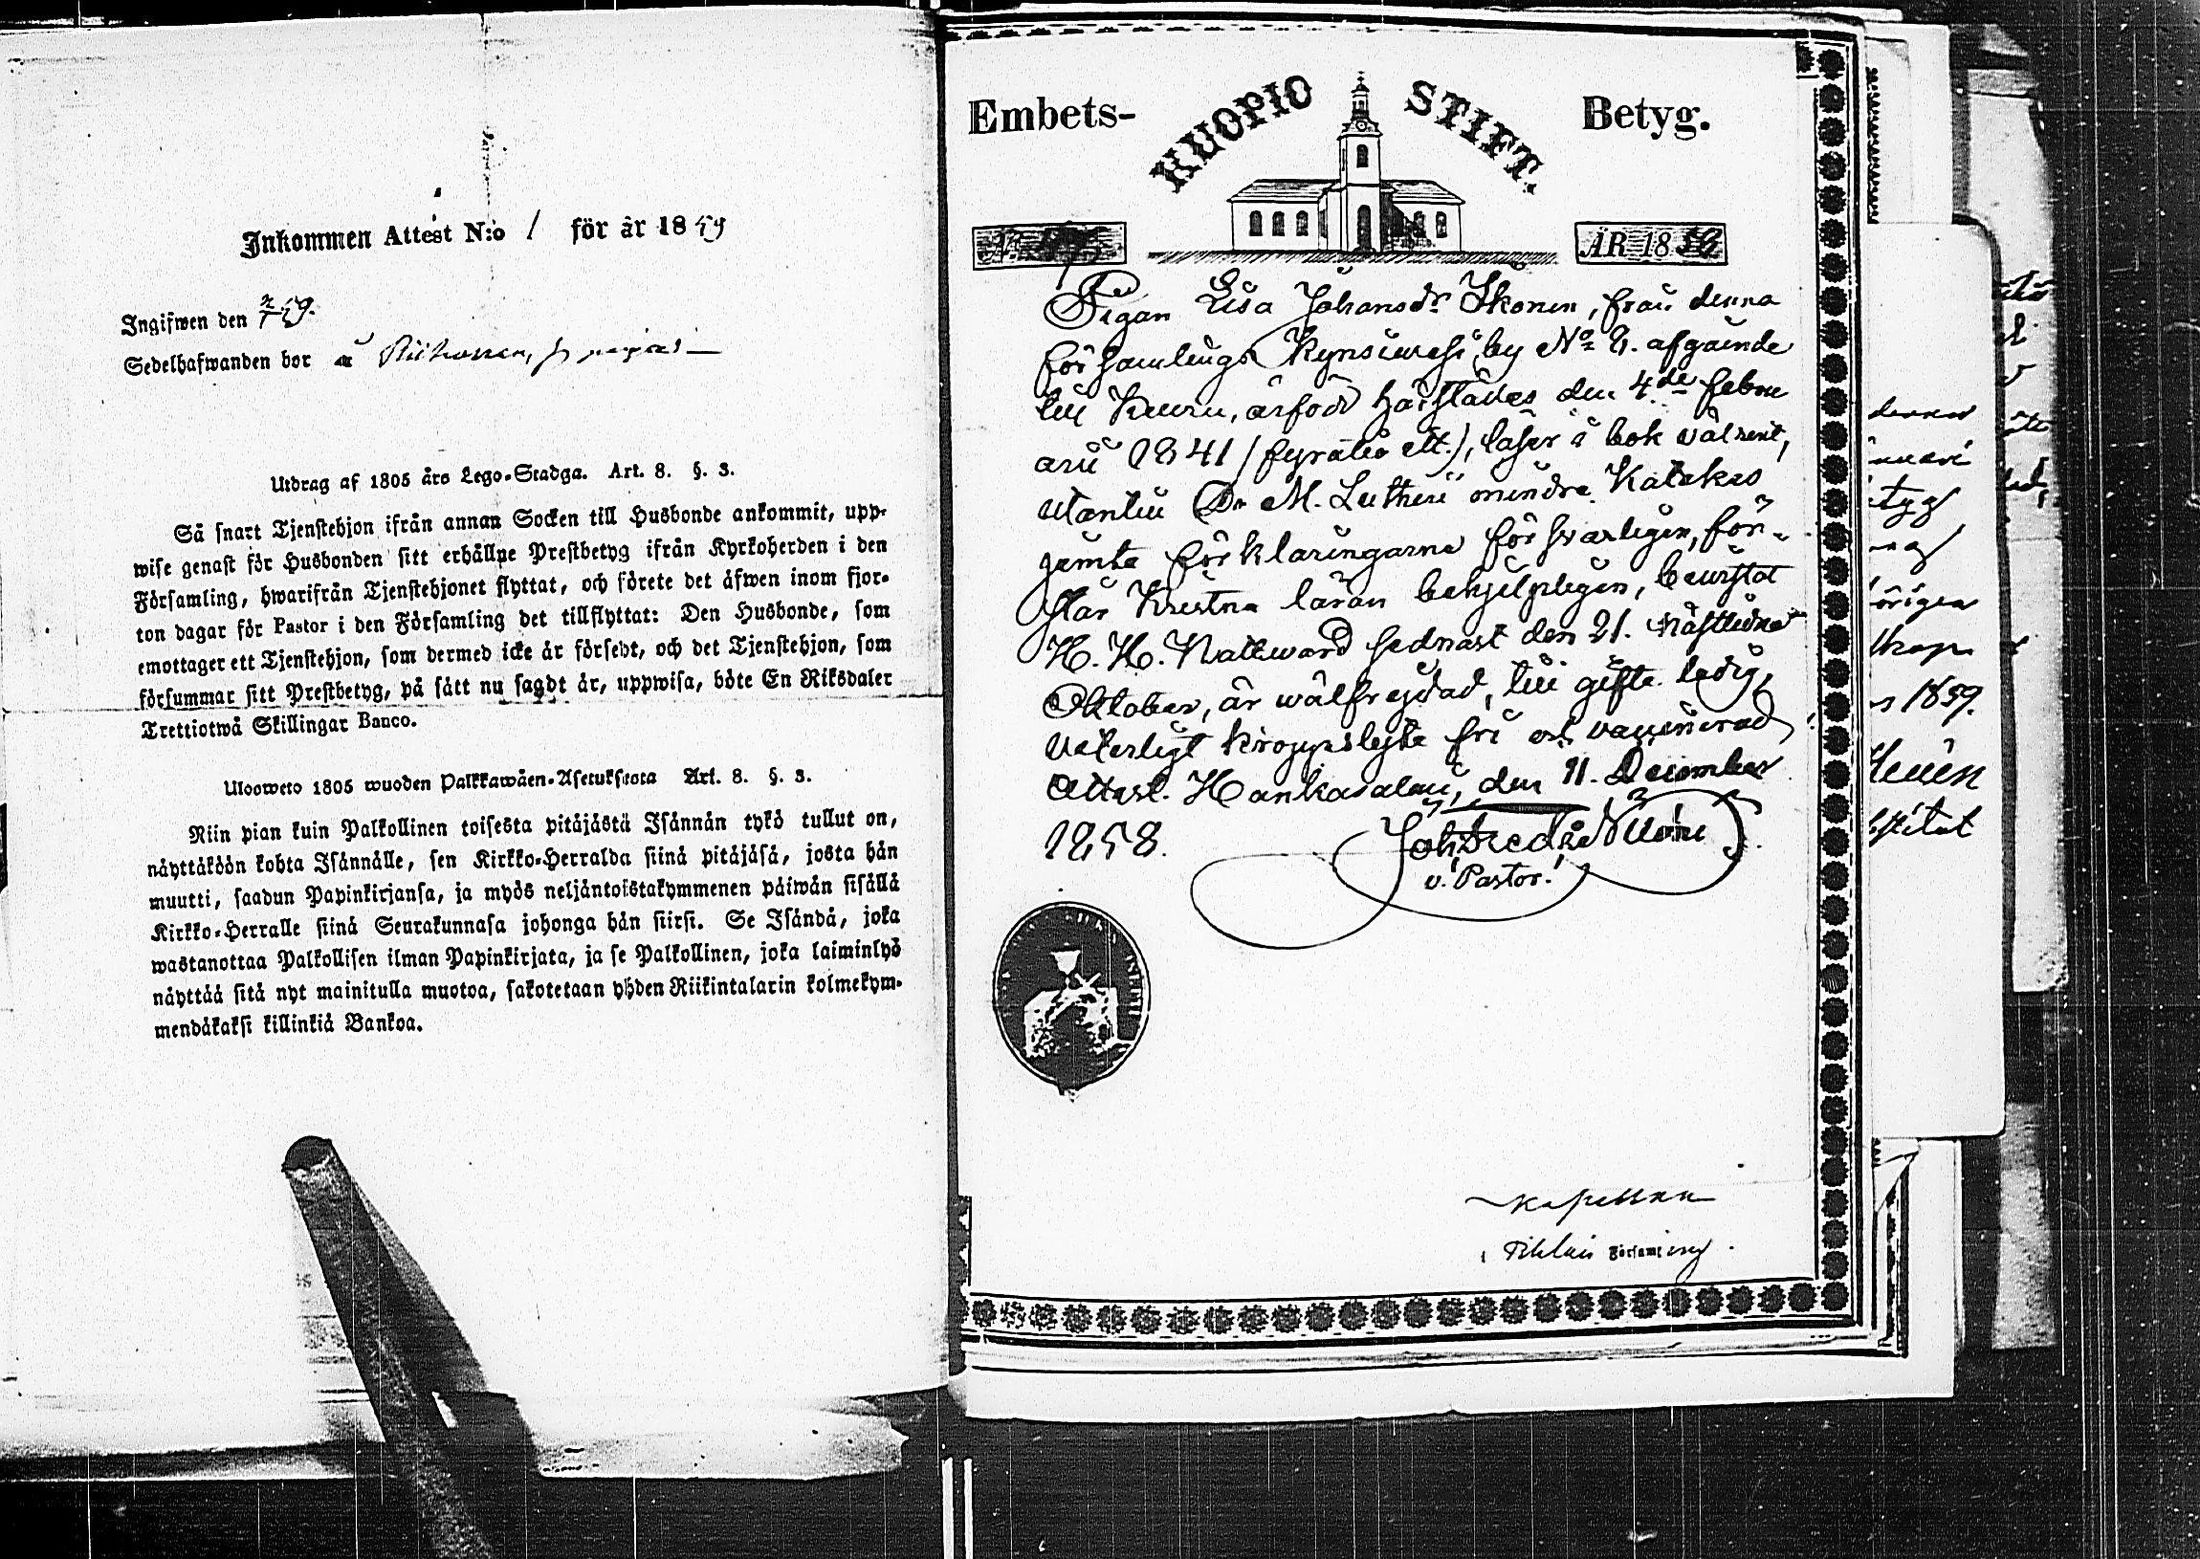 Inkommen Attest N:o 1 för år 1859
Ingifwen den 2/1 59.
Sedelhafwanden bor å
Utdrag af 1805 års Lego-Stadga. Art. 8. §. 3.
Så snart Tjenstehjon ifrån annan Socken till Husbonde ankommit, upp-
wise genast för Husbonden sitt erhållne Prestbetyg ifrån Kyrkoherden i den
Församling, hwarifrån Tjenstehjonet flyttat, och förete det äfwen inom fjor-
ton dagar för Pastor i den Församling det tillflyttat: Den Husbonde, som
emottager ett Tjenstehjon, som dermed icke är försedt, och det Tjenstehjon, som
försummar sitt Prestbetyg, på sätt nu sagdt är, uppwisa, böte En Riksdaler
Trettiotwå Skillingar Banco.
Uloosweto 1805 wuoden Palkkawäen-Asetuksesta Art. 8. §. 3.
Niin pian kuin Palkollinen toisesta pitäjästä Isännän tykö tullut on,
näyttäköön kohta Isännälle, sen Kirkko-Herralda siinä pitäjäsä, josta hän
muutti, saadun Papinkirjansa, ja myös neljäntoistakymmenen päiwän sisällä
Kirkko-Herralle siinä Seurakunnasa johonga hän siirsi. Se Isändä, joka
wastanottaa Palkollisen ilman Papinkirjata, ja se Palkollinen, joka laiminlyö
näyttää sitä nyt mainitulla muotoa, sakotetaan yhden Riikintalarin kolmekym-
mendäkaksi killinkiä Bankoa.
Embets- KUOPIO STIFT. Betyg.
N. ÅR 1858
Pigan Lisa Johansdr Ikonen, från denna
församlings Kynsiwesi by No 8. afgående
till Keuru, är född härstädes den 4.de Febru
arii 1841 (fyratio ett.), läser i bok välrent,
utantill Dr M. Lutheri mindre Katekes
jemte förklaringarne försvarligen, för-
står Kristna läran behjelpligen, bewistat
H. H. Nattward sednast den 21. nästledne
Oktober, är wälfrejdad, till gifte ledig,
veterligt kroppslyte fri och vaccinerad
Attest. Hankasalmi, den 11. December
1858.
Joh. Fredr.
v. Pastor.
Kapellan
i Pihlais Församling.
denna
nuari
etyg
örigen
1859.